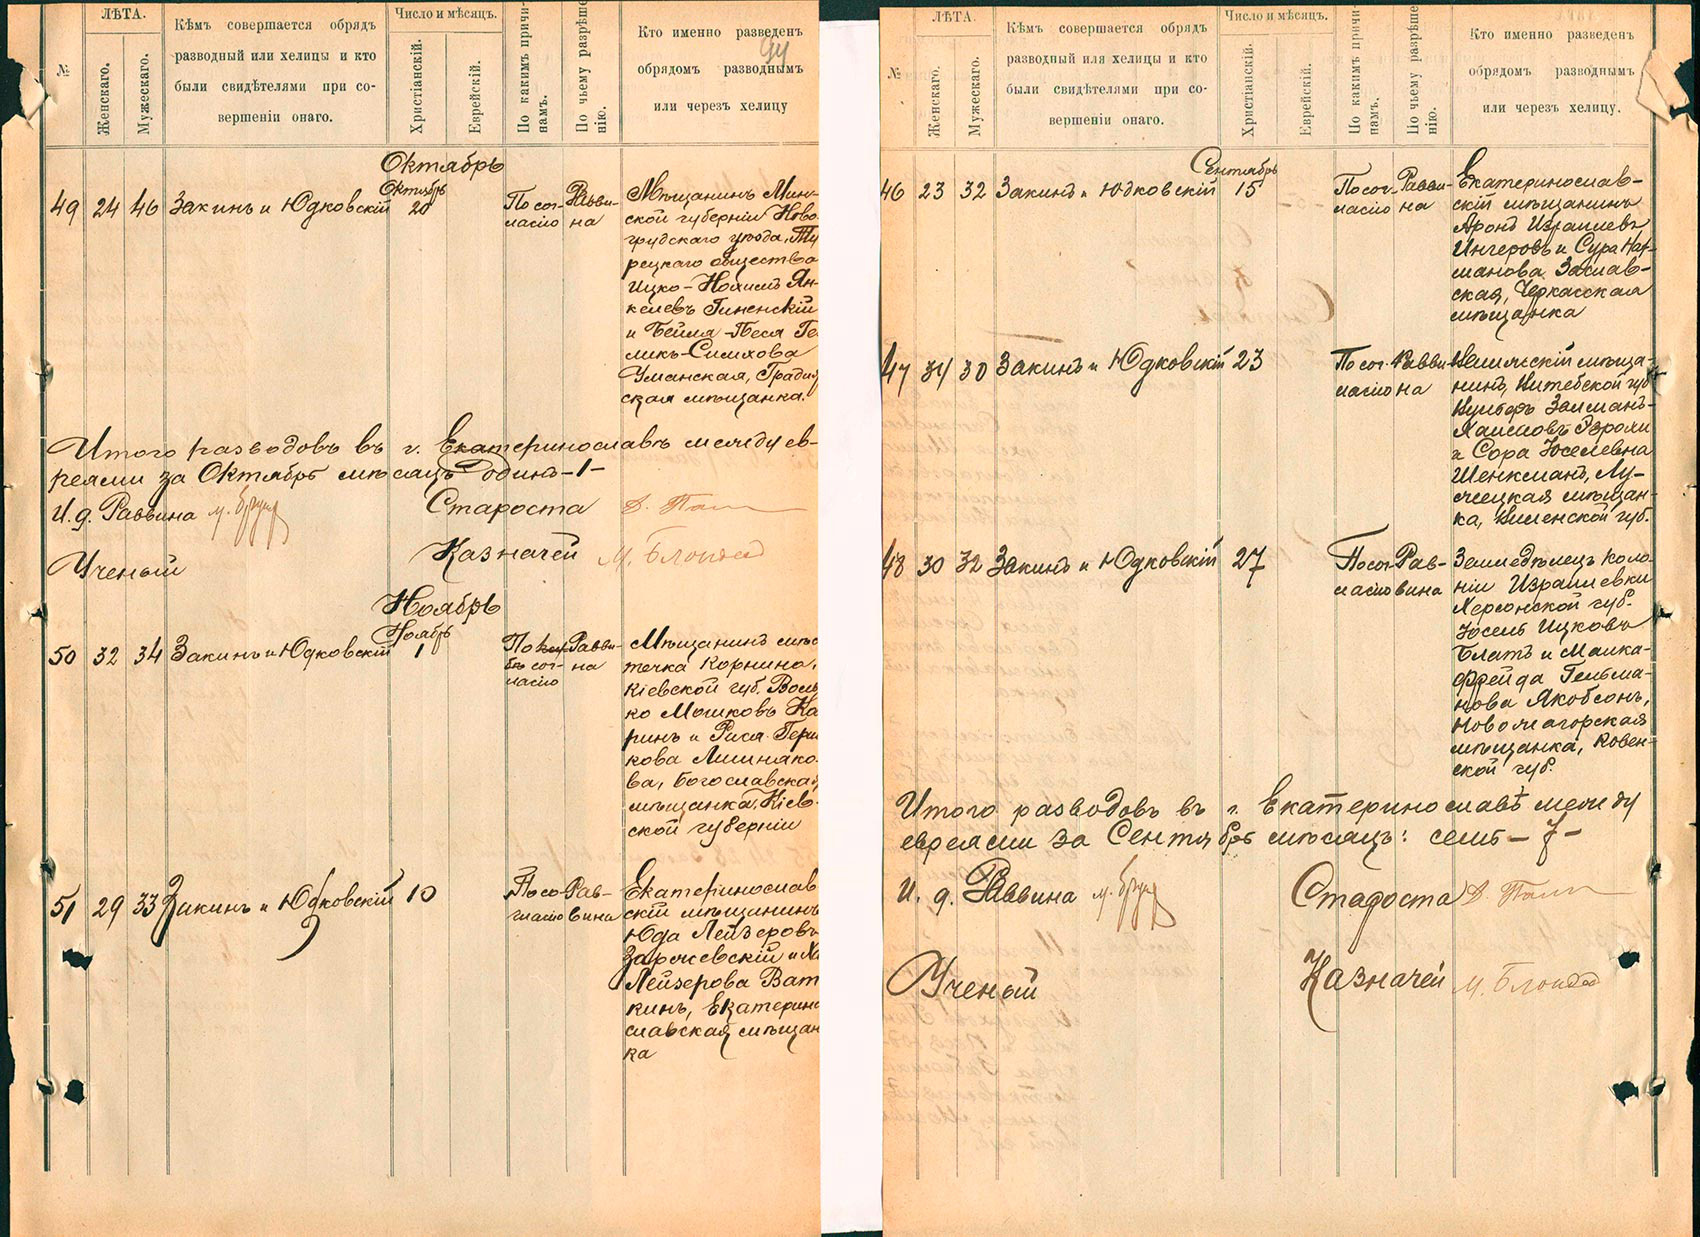 ЛѢТА.
№
Женскаго.
Мужескаго.
Кѣмъ совершается обрядъ
разводный или хелицы и кто
были свидѣтелями при со-
вершеніи онаго.
Число и мѣсяцъ.
Христіанскій.
Еврейскій.
По какимъ причи-
намъ.
По чьему разрѣше-
нію.
Кто именно разведенъ
обрядомъ разводнымъ
или черезъ хелицу
Октябрь
49 24 46 Закинъ и Юдковскій
Октябрь
20
По сог-
ласію
Равви-
на
Мѣщанинъ Мин-
ской губерніи Ново-
грудскаго уѣзда, Ту
рецкаго общества
Ицко-Нохимъ Ян-
келевъ Гиненскій
и Бейля-Песя Ге
ликъ-Симхова
Уманская, Градиж
ская мѣщанка.
Итого разводовъ въ г. Екатеринославѣ между ев-
реями за Октябрь мѣсяцъ один-1-
И. д. Раввина
Староста
Ученый
Казначей М. Блондед
Ноябрь
50 32 34 Закинъ и Юдковскій
Ноябрь
1
По
сог-
ласію
Равви-
на
Мѣщанинъ мѣс
течка Корнина,
Кіевской губ. Воль
ко Мошковъ Ка
ринъ и Рися Герш
кова Лишняко
ва, Богославская
мѣщанка, Кіев-
ской губерніи
51 29 33 Закинъ и Юдковскій 10
По со-
гласію
Рав-
вина
Екатеринослав
скій мѣщанинъ
Юда Лейзеровъ
Заржевскій и Ха
Лейзерова Ват
кинъ, Екатерино
славская мѣщан
ка
ЛѢТА.
№
Женскаго.
Мужескаго.
Кѣмъ совершается обрядъ
разводный или хелицы и кто
были свидѣтелями при со-
вершеніи онаго.
Число и мѣсяцъ.
Христіанскій.
Еврейскій.
По какимъ причи-
намъ.
По чьему разрѣше
нію.
Кто именно разведенъ
обрядомъ разводнымъ
или черезъ хелицу.
Сентябрь
46 23 32 Закинъ и Юдковскій 15
По сог-
ласію
Равви-
на
Екатеринослав-
скій мѣщанинъ
Аронъ Израилевъ
Ингеровъ и Сура Нах-
манова Заслав-
ская, Черкасская
мѣщанка
47 34 30 Закинъ и Юдковскій 23
По сог-
ласію
Равви-
на
мѣща-
нинъ, Витебской губ
Залманъ-
Хаимовъ
и Сора Іоселевна
Шенкманъ, Лу-
жецкая мѣщан-
ка, Виленской губ.
48 30 32 Закинъ и Юдковскій 27
По сог-
ласію
Рав-
вина
Земледѣлецъ коло-
ніи Израилевки
Херсонской губ.
Іосель Ицковъ
Блатъ и Малка-
Фрейда Гельма-
нова Якобсонъ,
Новожагорская
мѣщанка, Ковен-
ской губ.
Итого разводовъ въ г. Екатеринославѣ между
евреями за Сентябрь мѣсяцъ: семь-7-
И. д. Раввина
Староста
Ученый
Казначей М. Блондед